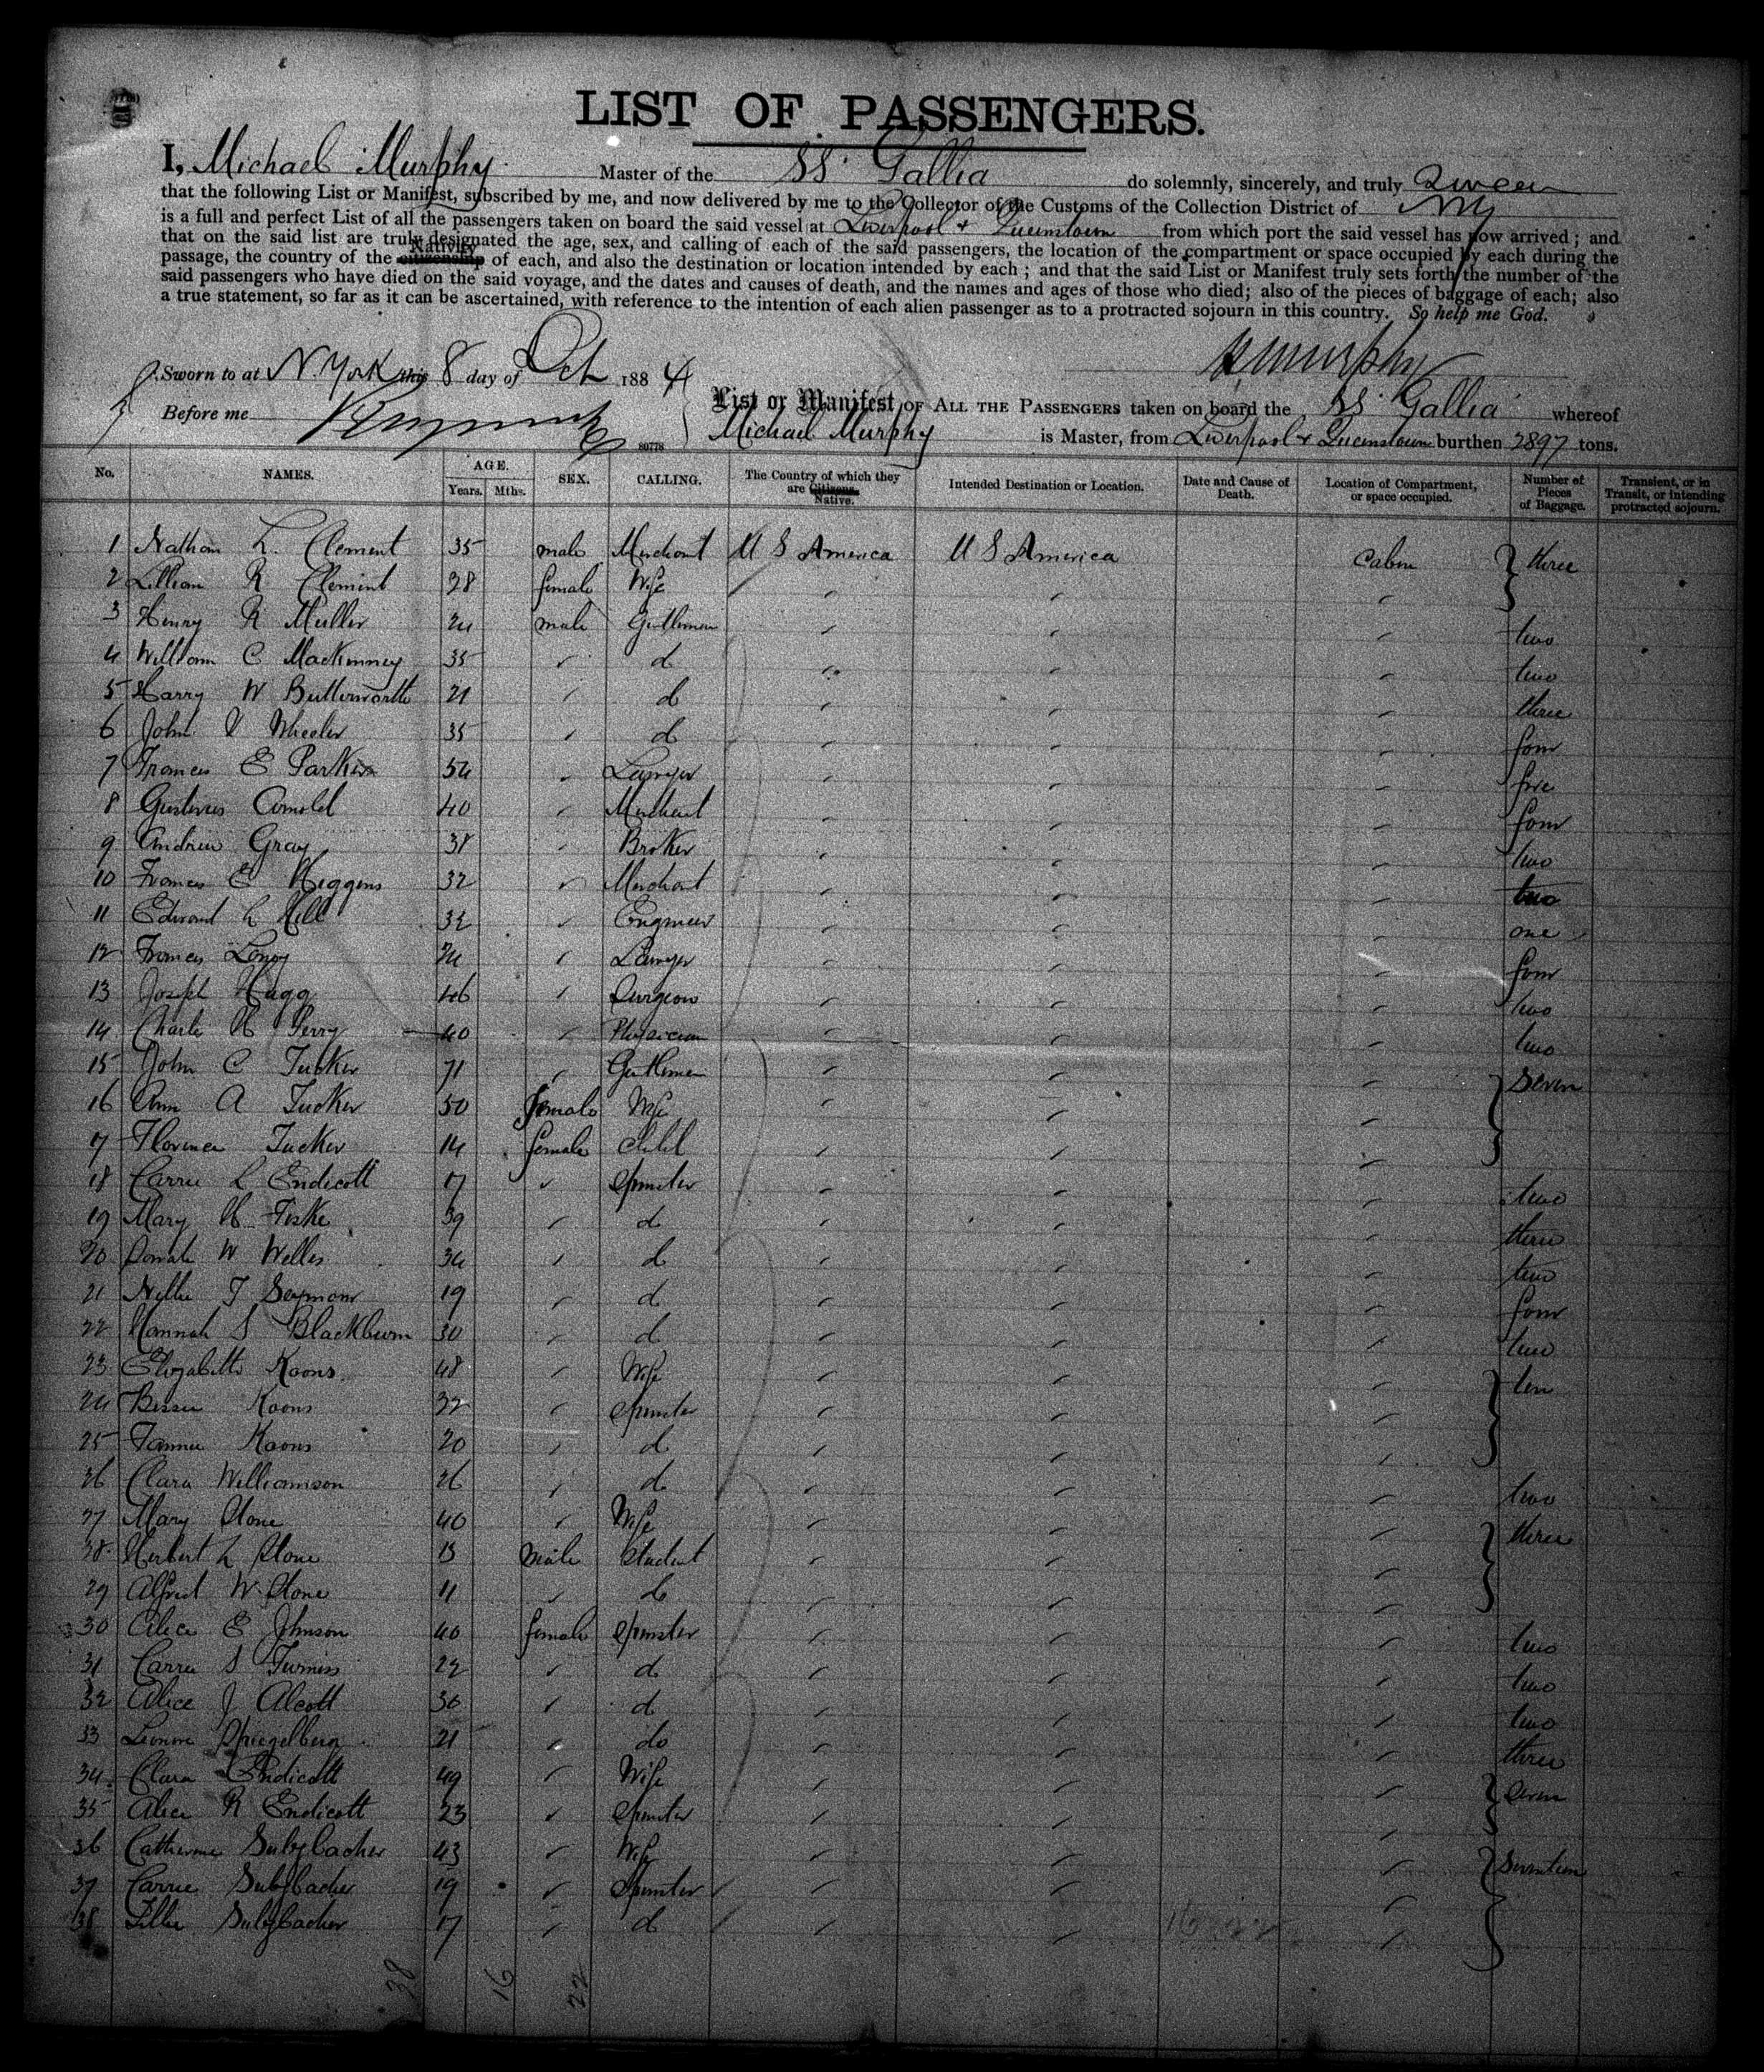 LIST OF PASSENGERS.
I, Michael Murphy Master of the SS Gallia do solemnly, sincerely, and truly swear
that the following List or Manifest, subscribed by me, and now delivered by me to the Collector of the Customs of the Collection District of NY
is a full and perfect List of all the passengers taken on board the said vessel at Liverpool & Queenstown from which port the said vessel has now arrived; and
that on the said list are truly designated the age, sex, and calling of each of the said passengers, the location of the compartment or space occupied by each during the
Nativity
passage, the country of the citizenship of each, and also the destination or location intended by each; and that the said List or Manifest truly sets forth the number of the
said passengers who have died on the said voyage, and the dates and causes of death, and the names and ages of those who died; also of the pieces of baggage of each; also
a true statement, so far as it can be ascertained, with reference to the intention of each alien passenger as to a protracted sojourn in this country. So help me God.
Sworn to at N. York this 8 day of Oct 1884 Murphy
Before me
List or Manifest OF ALL THE PASSENGERS taken on board the SS Gallia whereof
80778 Michael Murphy is Master, from Liverpool & Queenstown burthen 2897 tons.
No. NAMES. AGE. Years. Mths. SEX. CALLING. The Country of which they are Citizens. Native. Intended Destination or Location. Date and Cause of Death. Location of Compartment, or space occupied. Number of Pieces of Baggage. Transient, or in Transit, or intending protracted sojourn.
1 Nathan L. Clement 35 male Merchant U S America U S America Cabin three
2 Lillian R Clement 28 female Wife
3 Henry R Muller 24 male Gentleman two
4 William C Mackinney 35 d two
5 Harry W Butterworth 21 d three
6 John Wheeler 35 d four
7 Frances E Parker 54 Lawyer five
8 Gustavus Arnold 40 Merchant four
9 Andrew Gray 38 Broker two
10 Frances E Higgins 32 Merchant two
11 Edward L Hill 32 Engineer one
12 Frances Long 24 Lawyer four
13 Joseph Hugg 46 Surgeon two
14 Charle H Perry 40 Physician two
15 John C Tucker 71 Gentleman Seven
16 Ann A Tucker 50 female Wife
17 Florence Tucker 14 female child
18 Carrie L Endicott 17 Spinster two
19 Mary H Fiske 39 d three
20 Sarah W Welles 34 d two
21 Nellie T Seymour 19 d four
22 Hannah S Blackburn 30 d two
23 Elizabeth Koons 48 Wife ten
24 Bessie Koons 22 Spinster
25 Fannie Koons 20 d
26 Clara Williamson 26 d two
27 Mary Stone 40 Wife three
28 Herbert L Stone 13 male Student
29 Alfred W Stone 11 do
30 Alice E Johnson 40 female Spinster two
31 Carrie S Furniss 22 d two
32 Alice J Alcott 30 d two
33 Leonore Spiegelberg 21 do three
34 Clara Endicott 49 Wife Seven
35 Alice R Endicott 23 Spinster
36 Catherine Sulzbacher 43 Wife Seventeen
37 Carrie Sulzbacher 19 Spinster
38 Tillie Sulzbacher 17 d
38 16 22